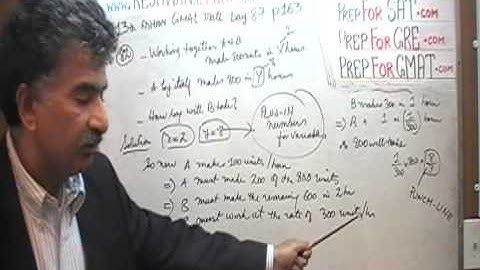 PREP FOR SAT.com
PREP FOR GRE.com
PREP FOR GMAT.com
GMAT Date Day 87 p163
82 - Working together A & B
make 800 units in x hours
- A by itself makes 800 in y hours
- How long will B take?
Solution x = 2 y = 8
PLUG-IN
numbers
for variables
So now A makes 100 units/hour
⇒ A must make 200 of the 800 units
⇒ B must make the remaining 600 in 2 hr
must work at the rate of 300 units/hr
B makes 300 in 1 hour
⇒ 1 in 1/300 hour
⇒ 800 will take
1/300 × 800 = 8/3
PUNCH-LINE